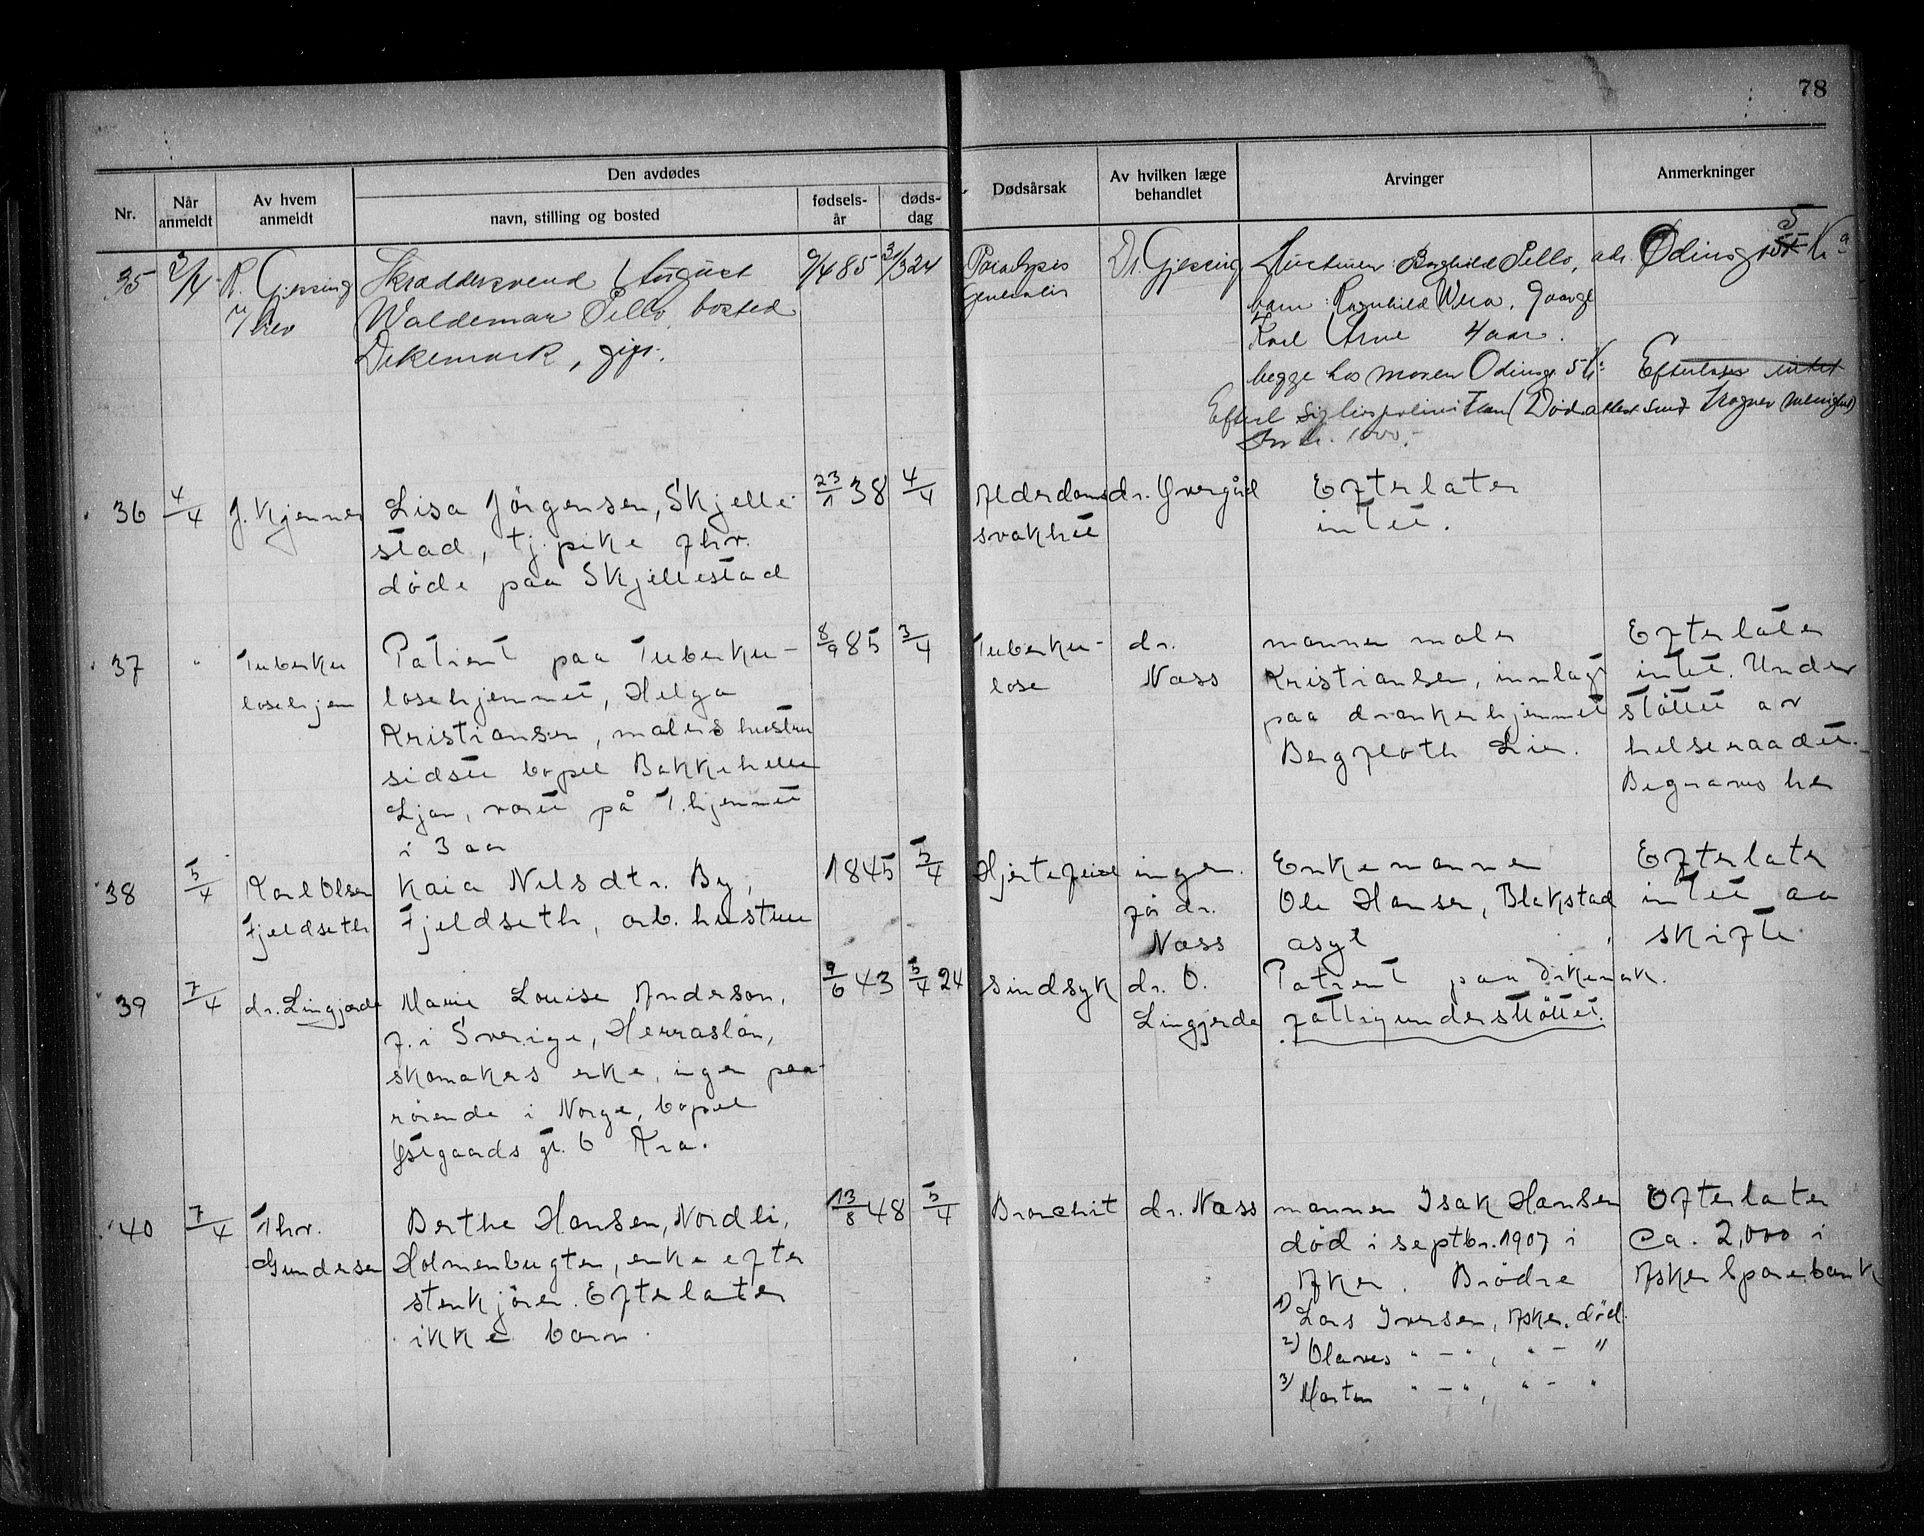 78
Nr.
Når anmeldt
Av hvem anmeldt
Den avdødes
navn, stilling og bosted
fødsels-år
døds-dag
Dødsårsak
Av hvilken læge behandlet
Arvinger
Anmerkninger
35
2/4
R. Gjessing
brev
Skræddersvend August
Waldemar Pello, bosted
Dikemark, gift.
9/4 85
31/3 24
Paralysis
Generalis
Dr. Gjessing
Hustruen Borghild Pello, adr. Odinsgt
barn: Ragnhild Wera, 9 aar
Karl Arne 4 aar.
begge hos moren Odinsgt 5
Efterlater intet
Kr. 1000.-
36
4/4
J. Kjenner
Lisa Jörgensen, Skjelle-
stad, tj. pike fhv.
döde paa Skjellestad
23/1 38
4/4
Alderdoms
svakhet
dr. Övergård
Efterlater
intet.
37
"
Tuberku
losehjem
Patient paa Tuberku-
losehjemmet, Helga
Kristiansen, malers hustru
sidste bopel Bakkehellen
Ljan, været på T.hjemmet
i 3 aar
8/9 85
3/4
Tuberku-
lose
dr.
Næss
mannen maler
Kristiansen, innlagt
paa drankerhjemmet
Bergfloth Lier.
Efterlater
intet. Under
støttet av
helseraadet.-
Begraves her
38
5/4
Karl Olsen
Fjeldseth
Kaia Nilsdtr. By,
Fjeldseth, arb. hustru
1845
5/4
Hjertefeil
ingen.
før dr.
Næss
Enkemannen
Ole Hansen, Blakstad
asyl
Efterlater
intet aa
skifte.
39
7/4
dr. Lingjærde
Marie Louise Anderson,
f. i Sverige, Herraslän,
skomakers enke, ingen paa-
rörende i Norge, bopel
Østgaards gt. 6 Kra.
9/6 43
5/4 24
sindsyk
dr. O.
Lingjerde
Patient paa Dikemark.
fattigunderstöttet.
40
7/4
Thv.
Gundersen
Berthe Hansen, Nordli,
Holmenbugten, enke efter
stenkjörer. Efterlater
ikke barn.
13/8 48
5/4
Bronchit
dr. Næss
mannen Isak Hansen
död i septbr. 1907 i
Aker. Brödre
1) Lars Iversen, Asker, död.
2) Olaves " - " , " - "
3) Morten " - " , " - "
Efterlater
Ca. 2,000 i
Asker Sparebank